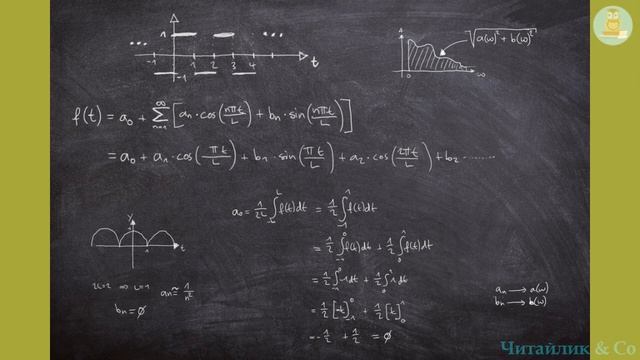 1
... ...
-1 1 2 3 4 t
-1
A
√a(ω)² + b(ω)²
0 ω
f(t) = a₀ + ∑ₙ₌₁^∞ [aₙ · cos(nπt/L) + bₙ · sin(nπt/L)]
= a₀ + a₁ · cos(πt/L) + b₁ · sin(πt/L) + a₂ · cos(2πt/L) + b₂ ........
a₀ = 1/2L ∫₋L^L f(t)dt = 1/2 ∫₋₁^1 f(t)dt
= 1/2 ∫₋₁^0 f(t)dt + 1/2 ∫₀^1 f(t)dt
= 1/2 ∫₋₁^0 -1dt + 1/2 ∫₀^1 1dt
= 1/2 [-t]₋₁^0 + 1/2 [t]₀^1
= -1/2 + 1/2 = ∅
y
-1 1 t
2L=2 ⇒ L=1
aₙ ≈ 1/n²
bₙ = ∅
aₙ → a(ω)
bₙ → b(ω)
Читайлик & Co